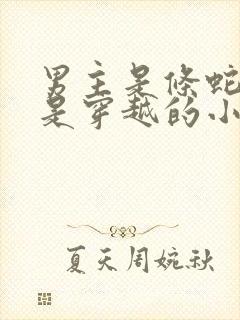 男主是条蛇
是穿越的小
夏天周婉秋